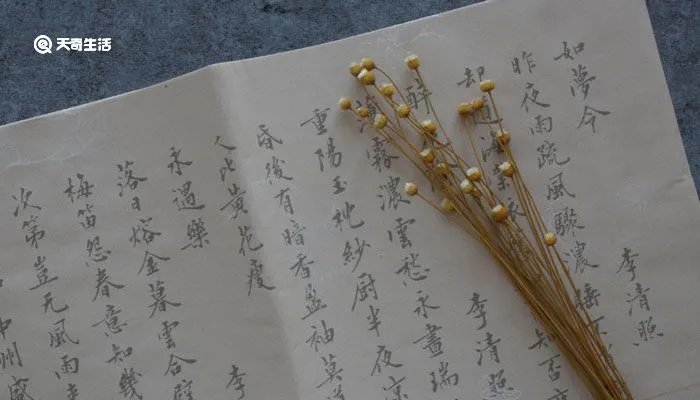 天奇生活
如夢令 李清照
昨夜雨疏風驟濃睡不
却道海棠依 知否
醉 李清照
薄霧濃雲愁永晝瑞
重陽玉枕紗厨半夜涼
昏後有暗香盈袖莫道
人比黃花瘦
永遇樂 李
落日熔金暮雲合璧
梅笛怨春意知幾
次第豈无風雨來
中州盛